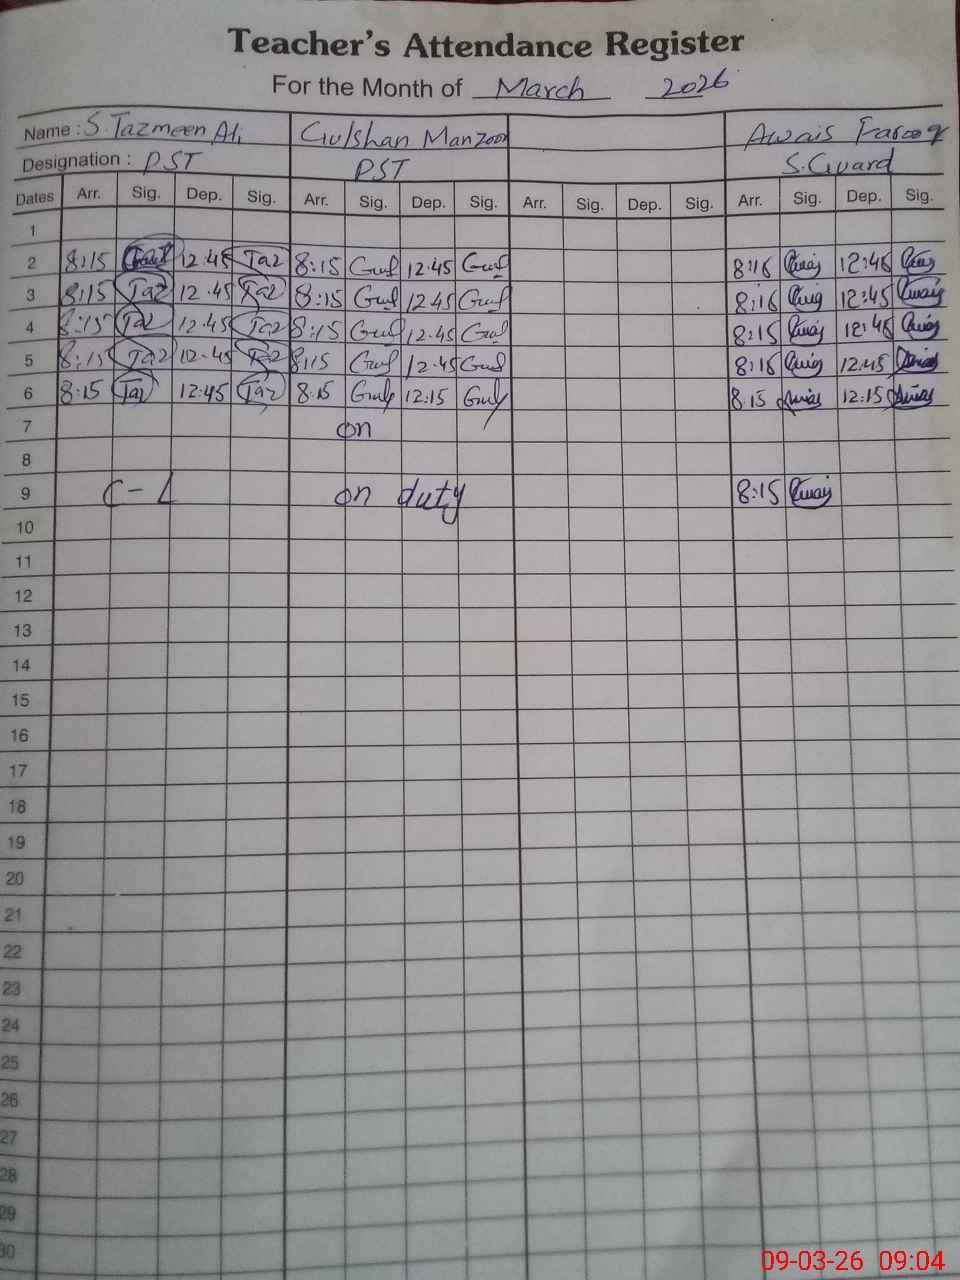 Teacher's Attendance Register
For the Month of March 2026
Name : S. Tazmeen Ali Gulshan Manzoor Awais Farooq
Designation : PST PST S. Guard
Dates Arr. Sig. Dep. Sig. Arr. Sig. Dep. Sig. Arr. Sig. Dep. Sig. Arr. Sig. Dep. Sig.
1
2 8:15 12:45 Taz 8:15 Gul 12.45 Gul 8:16 Awais 12:46 Awais
3 8:15 Taz 12.45 Taz 8:15 Gul 12.45 Gul 8:16 Awais 12:45 Awais
4 8:15 Taz 12.45 Taz 8:15 Gul 12.45 Gul 8:15 Awais 12:46 Awais
5 8:15 Taz 12.45 Taz 8:15 Gul 12.45 Gul 8:16 Awais 12:45 Awais
6 8:15 Taz 12:45 Taz 8:15 Gul 12:15 Gul 8:15 Awais 12:15 Awais
7 on
8
9 C-L on duty 8:15 Awais
10
11
12
13
14
15
16
17
18
19
20
21
22
23
24
25
26
27
28
29
30
09-03-26 09:04